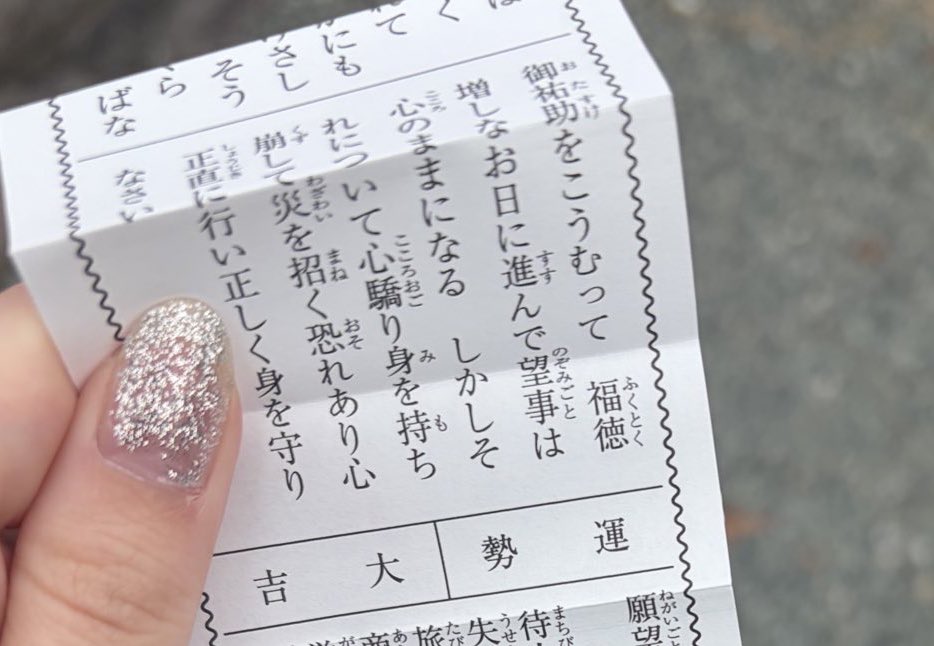 く
て
にも
さし
そう
ら
ばな
御祐助をこうむって 福徳
増しなお日に進んで望事は
心のままになる しかしそ
れについて心驕り身を持ち
崩して災を招く恐れあり心
正直に行い正しく身を守り
なさい
運勢 大吉
願望
待
失
旅
商